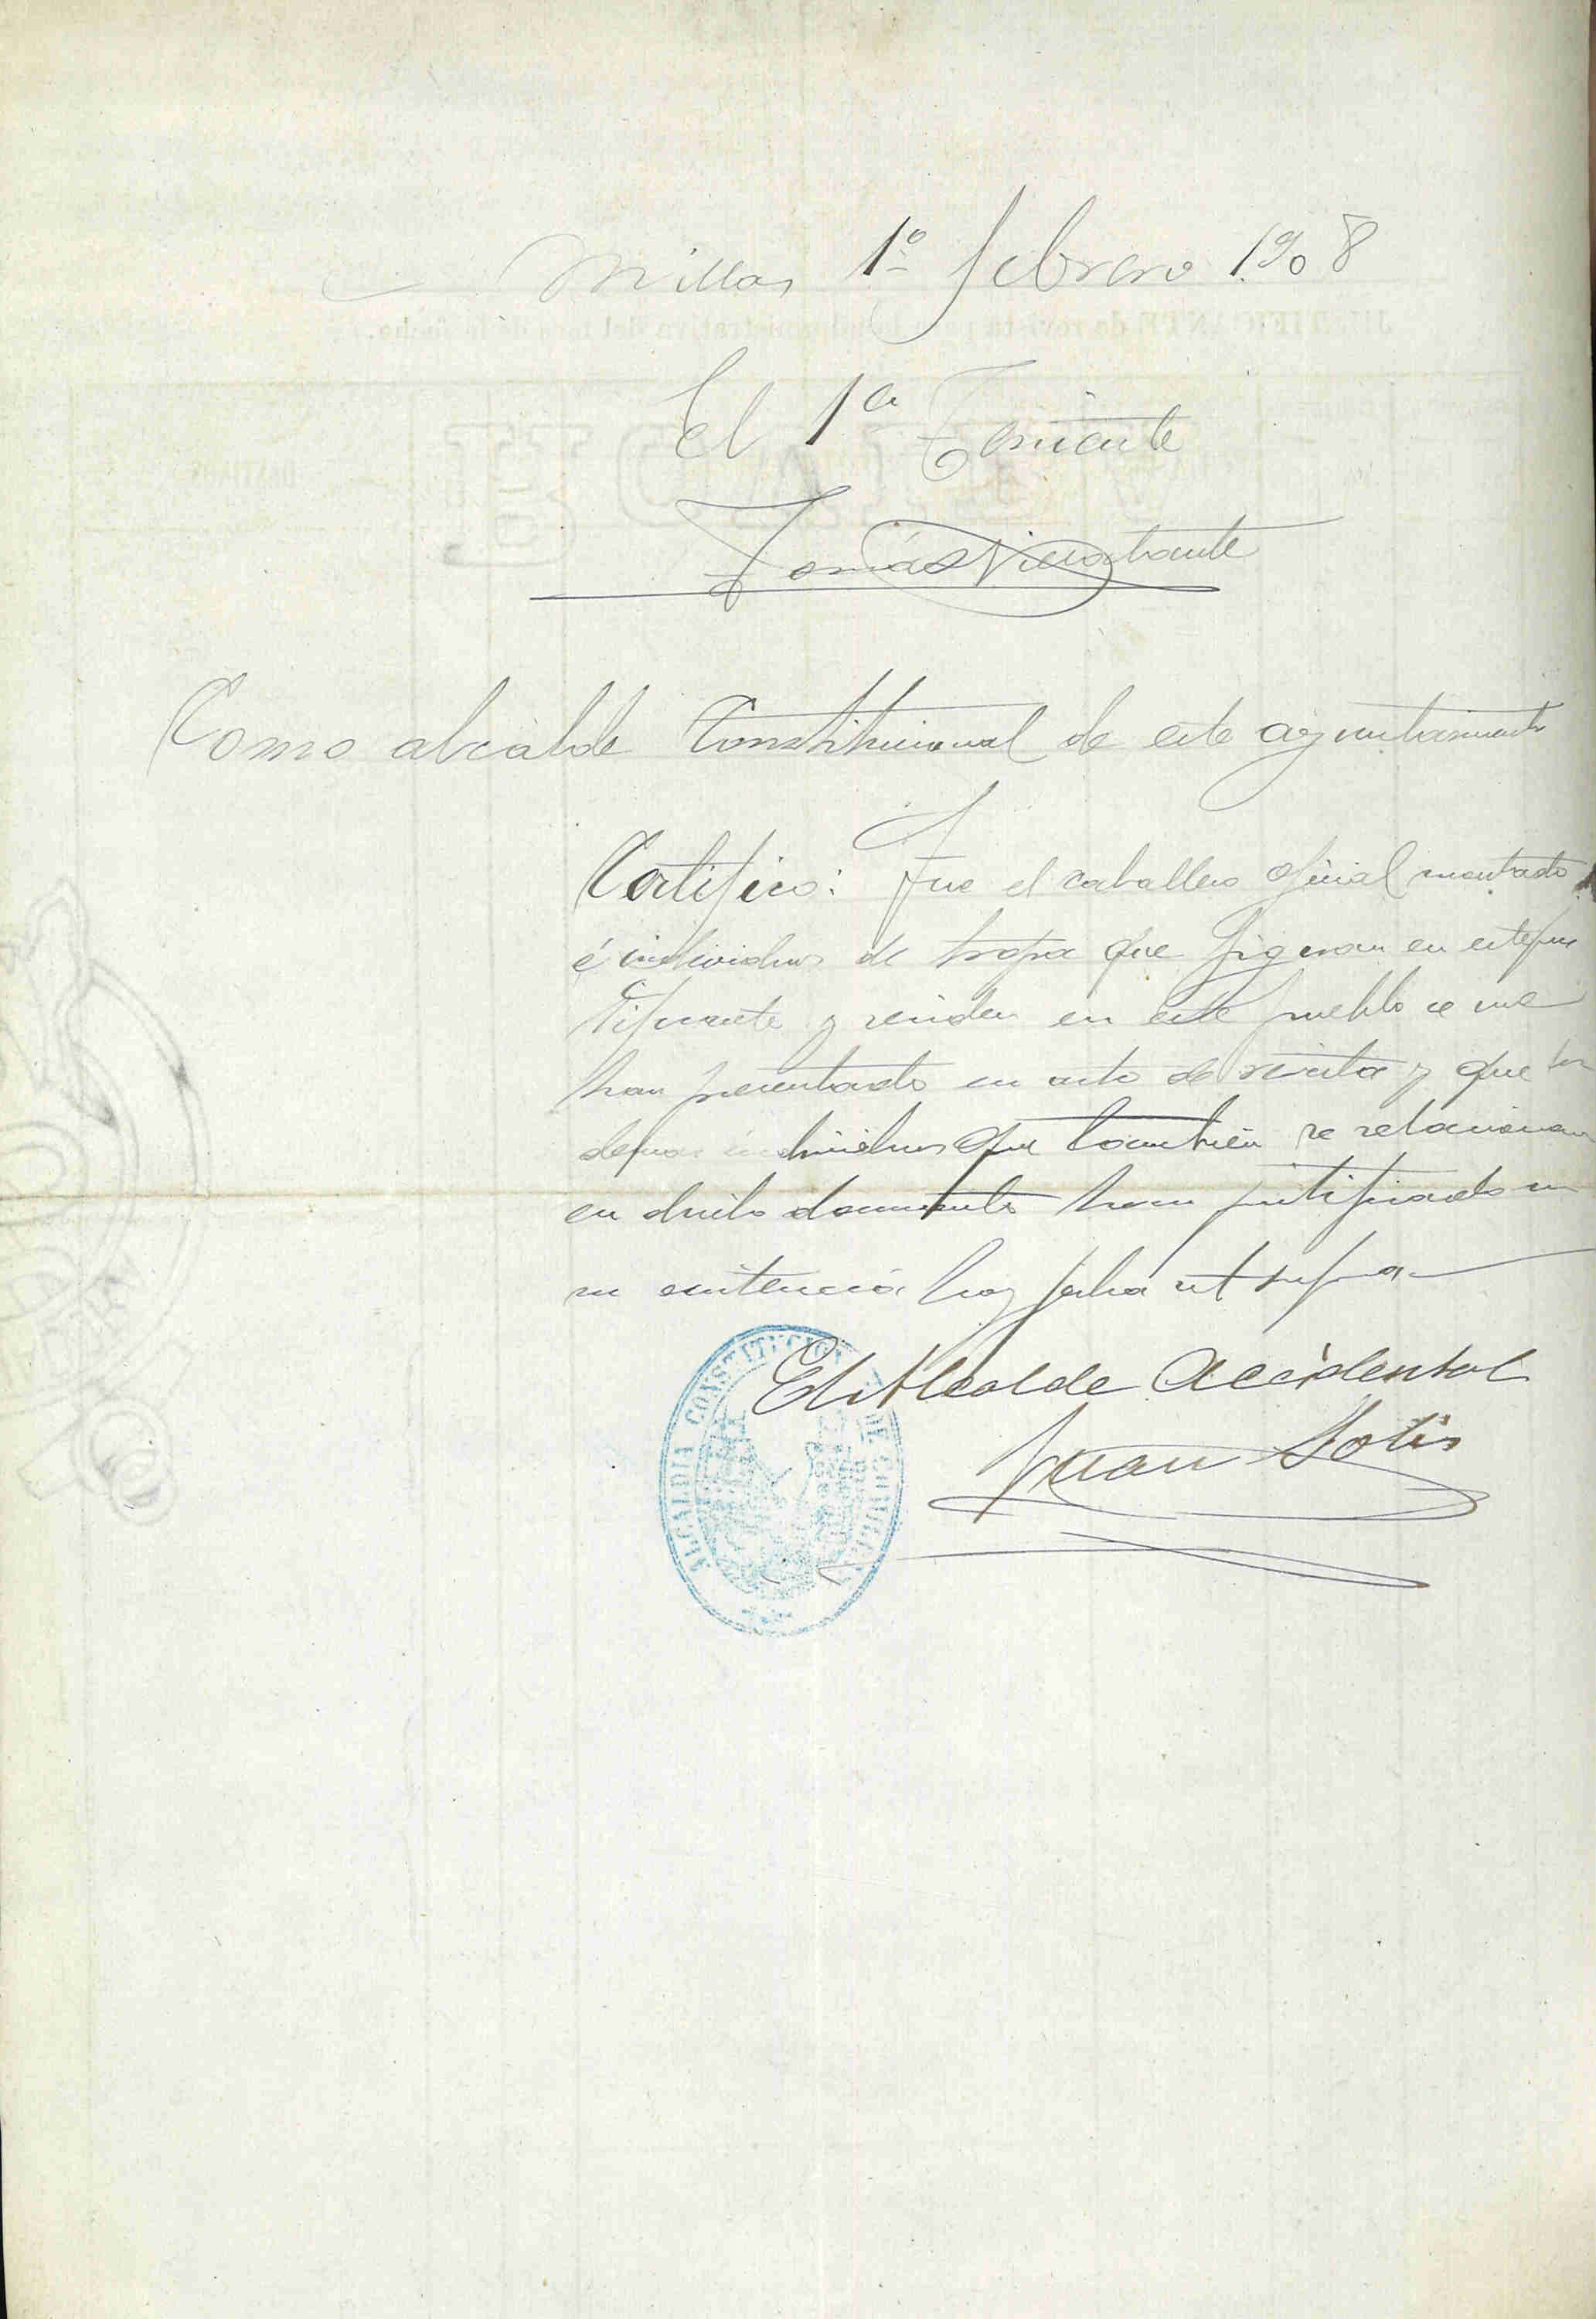 Millas 1º febrero 1908
El 1er Teniente
Tomás
Como alcalde Constitucional de este ayuntamiento
Certifico: Que el caballero oficial montado
é individuos de tropa que figuran en este jus
tificante y residen en este pueblo se me
han presentado en acto de revista y que los
demas individuos que tambien se relacionan
en dicho documento han justificado en
su existencia hoy fecha ut supra
El Alcalde Accidental
Juan Solis
ALCALDIA CONSTITUCIONAL DE